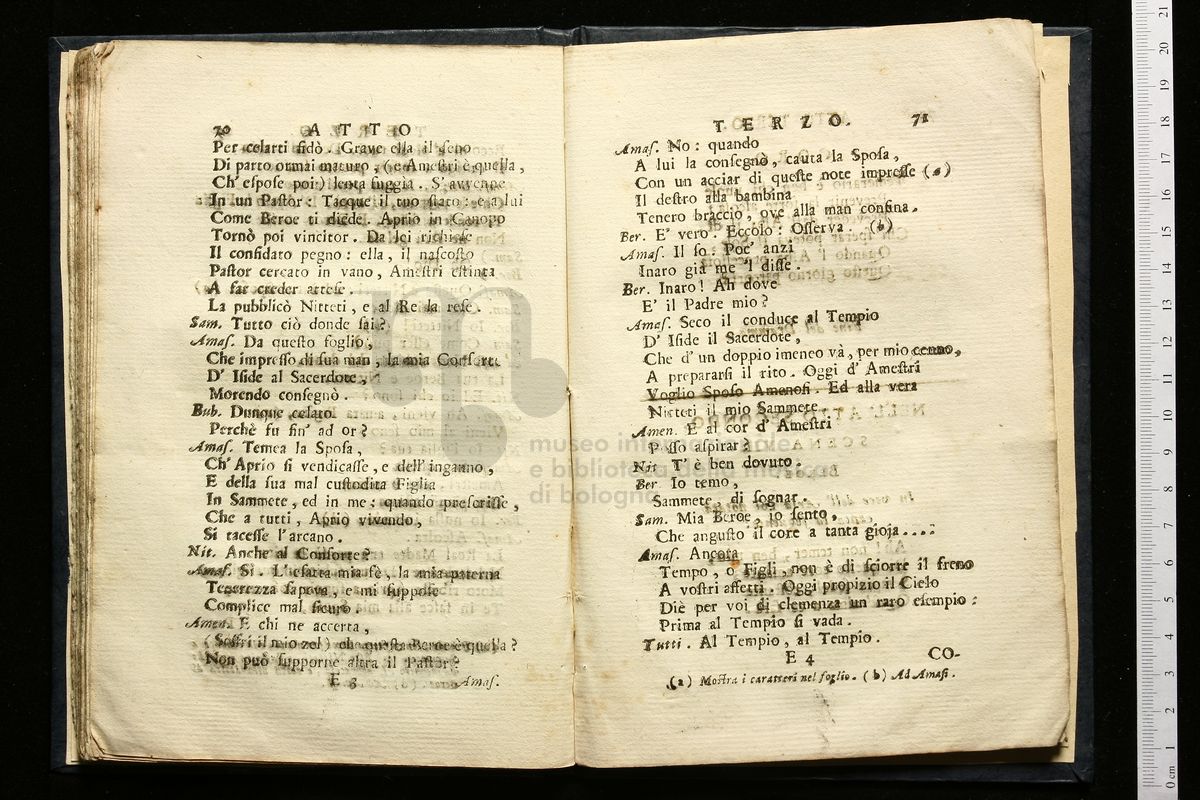 70 ATTO
Per celarti fidò. Grave ella il ſeno
Di parto ormai maturo, (e Ameſtri è quella,
Ch' eſpoſe poi) lenta fuggia. S' avvenne
In un Paſtor: Tacque il ſuo ſtato: e a lui
Come Beroe ti diede. Aprio in Canopo
Tornò poi vincitor. Da lei richieſe
Il confidato pegno: ella, il naſcoſto
Paſtor cercato in vano, Ameſtri eſtinta
A far creder atteſe.
La pubblicò Nitteti, e al Re la reſe.
Sam. Tutto ciò donde ſai?
Amaſ. Da queſto foglio,
Che impreſſo di ſua man, la mia Conſorte
D' Iſide al Sacerdote,
Morendo conſegnò.
Bub. Dunque celato
Perchè fu fin' ad or?
Amaſ. Temea la Spoſa,
Ch' Aprio ſi vendicaſſe, e dell' inganno,
E della ſua mal cuſtodita Figlia
In Sammete, ed in me: quando preſcriſſe,
Che a tutti, Aprio vivendo,
Si taceſſe l' arcano.
Nit. Anche al Conſorte?
Amaſ. Sì. L' eſatta mia fè, la mia paterna
Tenerezza ſapeva, e mi ſuppoſe
Complice mal ſicuro
Amen. E chi ne accerta,
(Soffri il mio zel) che queſta Beroe è quella?
Non può ſupporne altra il Paſtor?
E 3 Amaſ.
TERZO. 71
Amaſ. No: quando
A lui la conſegnò, cauta la Spoſa,
Con un acciar di queſte note impreſſe (a)
Il deſtro alla bambina
Tenero braccio, ove alla man confina.
Ber. E' vero. Eccolo: Oſſerva. (b)
Amaſ. Il ſo: Poc' anzi
Inaro già me 'l diſſe.
Ber. Inaro! Ah dove
E' il Padre mio?
Amaſ. Seco il conduce al Tempio
D' Iſide il Sacerdote,
Che d' un doppio imeneo và, per mio cenno,
A prepararſi il rito. Oggi d' Ameſtri
Voglio Spoſo Amenofi. Ed alla vera
Nitteti il mio Sammete.
Amen. E al cor d' Ameſtri
Poſſo aſpirar?
Nit T' è ben dovuto.
Ber Io temo,
Sammete, di ſognar.
Sam. Mia Beroe, io ſento,
Che anguſto il core a tanta gioja....
Amaſ. Ancora
Tempo, o Figli, non è di ſciorre il freno
A voſtri affetti. Oggi propizio il Cielo
Diè per voi di clemenza un raro eſempio:
Prima al Tempio ſi vada.
Tutti. Al Tempio, al Tempio.
E 4 CO-
(a) Moſtra i caratteri nel foglio. (b) Ad Amaſi.
museo internazionale
e biblioteca della musica
di bologna